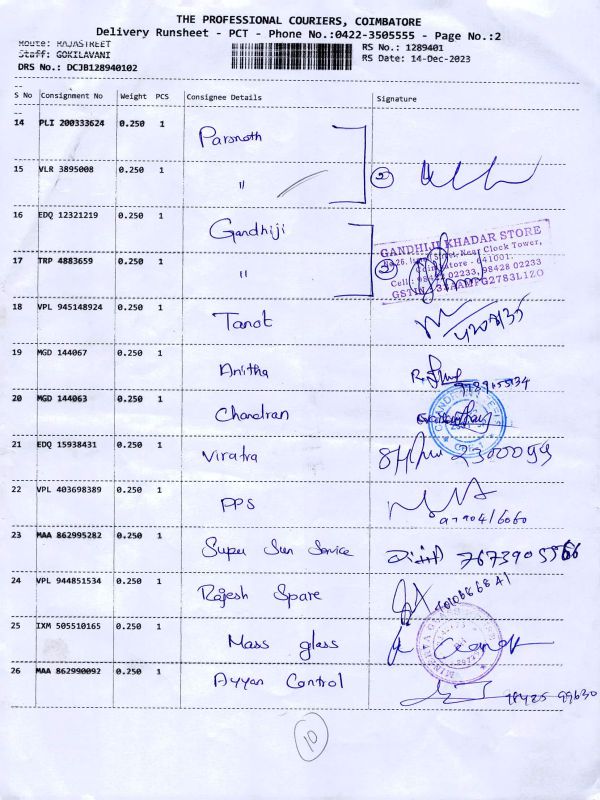 THE PROFESSIONAL COURIERS, COIMBATORE
Delivery Runsheet - PCT - Phone No.:0422-3505555 - Page No.:2
Route: RAJASTREET
Staff: GOKILAVANI
DRS No.: DCJB128940102
RS No.: 1289401
RS Date: 14-Dec-2023
S No Consignment No Weight PCS Consignee Details Signature
14 PLI 200333624 0.250 1 Parsnath
15 VLR 3895008 0.250 1 " 2
16 EDQ 12321219 0.250 1 Gandhiji
GANDHIJI KHADAR STORE
Near Clock Tower,
Coimbatore - 641001.
Cell : 98422 02233, 98428 02233
GSTIN : 33AAMFG2783L1ZO
17 TRP 4883659 0.250 1 " 2
18 VPL 945148924 0.250 1 Tanot
19 MGD 144067 0.250 1 Anitha
20 MGD 144063 0.250 1 Chandran
21 EDQ 15938431 0.250 1 Viratra
22 VPL 403698389 0.250 1 PPS
23 MAA 862995282 0.250 1 Super Sun Service
24 VPL 944851534 0.250 1 Rajesh Spare
25 IXM 505510165 0.250 1 Mass glass
26 MAA 862990092 0.250 1 Ayyan Control 98425 99630
10